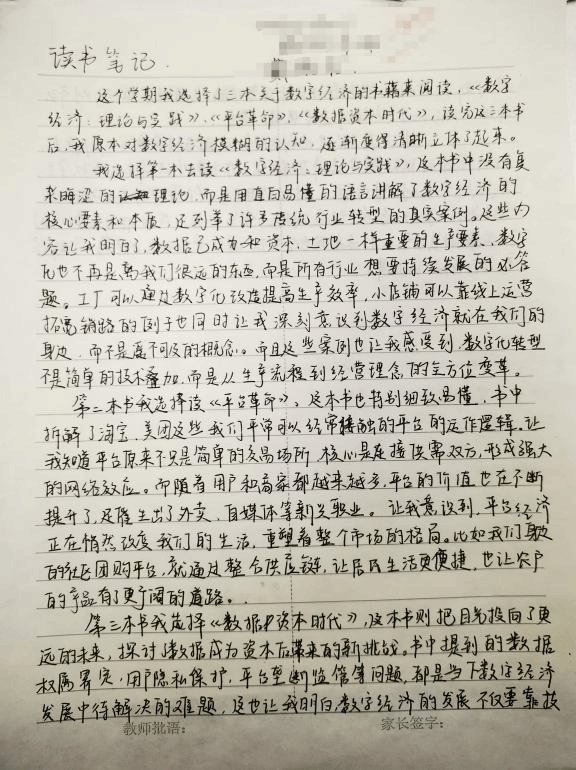 读书笔记.
这个学期我选择了三本关于数字经济的书籍来阅读,《数字
经济:理论与实践》、《平台革命》、《数据资本时代》,读完这三本书
后,我原本对数字经济模糊的认知,逐渐变得清晰立体了起来。
我选择第一本去读《数字经济:理论与实践》,这本书中没有复
杂晦涩的理论,而是用直白易懂的语言讲解了数字经济的
核心要素和本质,还列举了许多传统行业转型的真实案例。这些内
容让我明白了,数据已成为和资本,土地一样重要的生产要素,数字
化也不再是离我们很远的东西,而是所有行业想要持续发展的必答
题。工厂可以通过数字化改造提高生产效率,小店铺可以靠线上运营
拓宽销路的例子也同时让我深刻意识到数字经济就在我们的
身边,而不是遥不可及的概念。而且这些案例也让我感受到,数字化转型
不是简单的技术叠加,而是从生产流程到经营理念的全方位变革。
第二本书我选择读《平台革命》,这本书也特别细致易懂,书中
拆解了淘宝,美团这些我们平常可以经常接触的平台的运作逻辑。让
我知道平台原来不只是简单的交易场所,核心是连接供需双方,形成强大
的网络效应。而随着用户和商家都越来越多,平台的价值也在不断
提升了,还催生出了外卖,自媒体等新兴职业。让我意识到,平台经济
正在悄然改变我们的生活,重塑着整个市场的格局。比如我们身边
的社区团购平台,就通过整合供应链,让居民生活更便捷,也让农户
的产品有了更广阔的道路。
第三本书我选择《数据资本时代》,这本书则把目光投向了更
远的未来,探讨了数据成为资本后带来的新挑战。书中提到的数据
权属界定,用户隐私保护,平台垄断监管等问题,都是当下数字经济
发展中待解决的难题,这也让我明白,数字经济的发展不仅要靠技
教师批语: 家长签字: